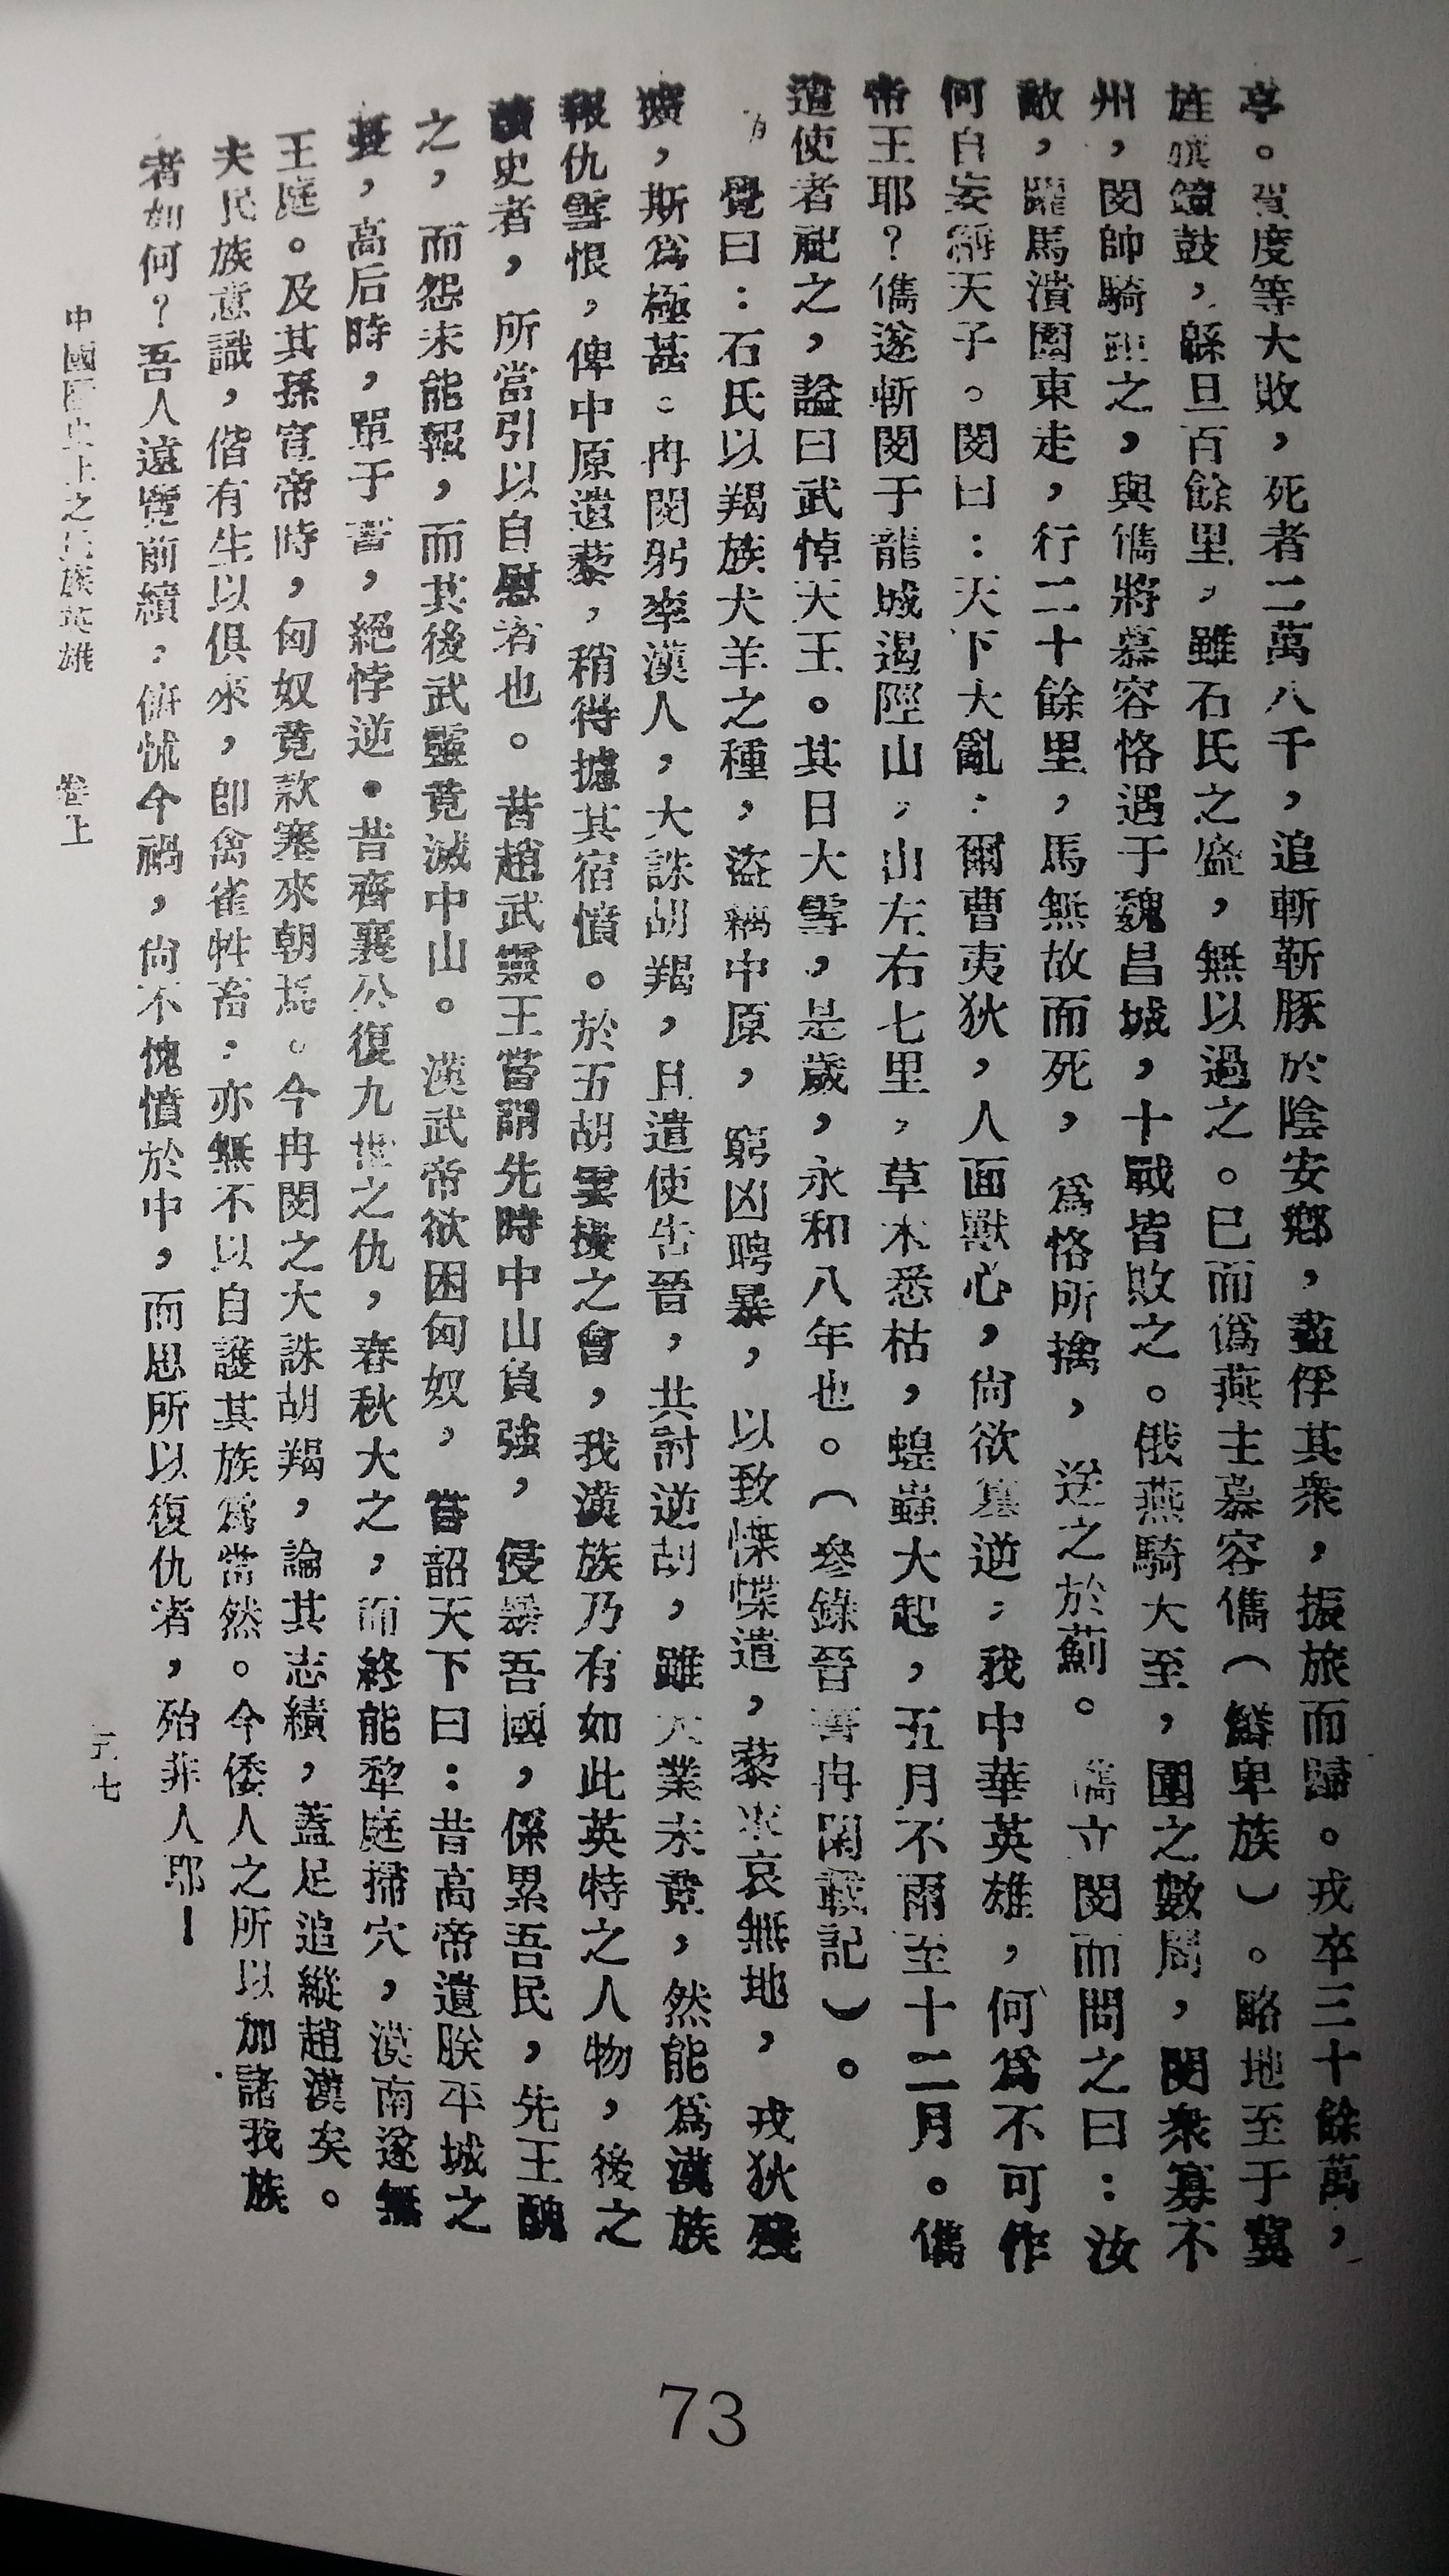 亭。賀度等大敗，死者二萬八千，追斬靳豚於陰安鄉，盡俘其衆，振旅而歸。戎卒三十餘萬，
旌旗鐘鼓，緜亘百餘里，雖石氏之盛，無以過之。已而僞燕主慕容儁（鮮卑族）。略地至于冀
州，閔帥騎距之，與儁將慕容恪遇于魏昌城，十戰皆敗之。俄燕騎大至，圍之數周，閔衆寡不
敵，躍馬潰圍東走，行二十餘里，馬無故而死，爲恪所擒，送之於薊。儁立閔而問之曰：汝
何自妄稱天子。閔曰：天下大亂，爾曹夷狄，人面獸心，尙欲篡逆，我中華英雄，何爲不可作
帝王耶？儁遂斬閔于龍城遏陘山，山左右七里，草木悉枯，蝗蟲大起，五月不雨至十二月。儁
遣使者祀之，謚曰武悼天王。其日大雪，是歲，永和八年也。（參錄晉書冉閔載記）。
覺曰：石氏以羯族犬羊之種，盜竊中原，窮凶騁暴，以致慄慄遺，藜衆哀無地，戎狄殘
擴，斯爲極甚。冉閔躬率漢人，大誅胡羯，且遣使告晉，共討逆胡，雖大業未竟，然能爲漢族
報仇雪恨，俾中原遺藜，稍得攄其宿憤。於五胡雲擾之會，我漢族乃有如此英特之人物，後之
讀史者，所當引以自慰者也。昔趙武靈王嘗謂先時中山負強，侵暴吾國，係累吾民，先王醜
之，而怨未能報，而其後武靈竟滅中山。漢武帝欲困匈奴，嘗詔天下曰：昔高帝遺朕平城之
憂，高后時，單于書，絕悖逆。昔齊襄公復九世之仇，春秋大之，而終能犂庭掃穴，漠南遂無
王庭。及其孫宣帝時，匈奴竟款塞來朝焉。今冉閔之大誅胡羯，論其志績，蓋足追縱趙漢矣。
夫民族意識，偕有生以俱來，卽禽雀牲畜，亦無不以自護其族爲當然。今倭人之所以加諸我族
者如何？吾人遠覽前績，俯怵今禍，尙不愧憤於中，而思所以復仇者，殆非人耶！
中國歷史上之民族英雄　卷上　六七
73